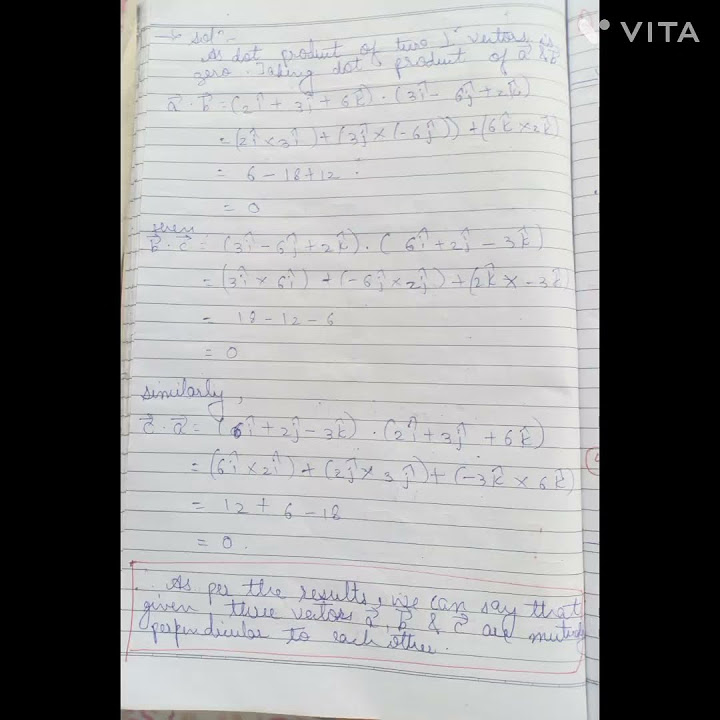 VITA
→ solⁿ:-
As dot product of two ⊥ʳ vectors is
zero. Taking dot product of a⃗ & b⃗
a⃗ · b⃗ = (2î + 3ĵ + 6k̂) · (3î - 6ĵ + 2k̂)
= (2î × 3î) + (3ĵ × (-6ĵ)) + (6k̂ × 2k̂)
= 6 - 18 + 12
= 0
then
b⃗ · c⃗ = (3î - 6ĵ + 2k̂) · (6î + 2ĵ - 3k̂)
= (3î × 6î) + (-6ĵ × 2ĵ) + (2k̂ × -3k̂)
= 18 - 12 - 6
= 0
similarly,
c⃗ · a⃗ = (6î + 2ĵ - 3k̂) · (2î + 3ĵ + 6k̂)
= (6î × 2î) + (2ĵ × 3ĵ) + (-3k̂ × 6k̂)
= 12 + 6 - 18
= 0.
As per the results, we can say that
given three vectors a⃗, b⃗ & c⃗ are mutually
perpendicular to each other.